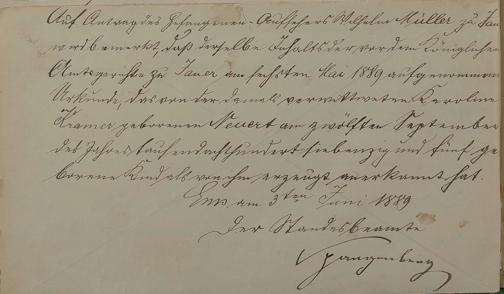 Auf Antrag des Gefangenen-Aufsehers Wilhelm Müller zu
wird bemerkt, daß derselbe Inhalts der vor dem Königlichen
Amtsgerichte zu Jauer am sechsten Mai 1889 aufgenommenen
Urkunde, das von der damals verwittweten Karoline
Kramer geborenen Neuert am zwölften September
des Jahres tausendachthundert siebenzig und fünf ge
borene Kind als von ihm erzeugt anerkannt hat.
am 3ten Juni 1889
Der Standesbeamte
Spangenberg